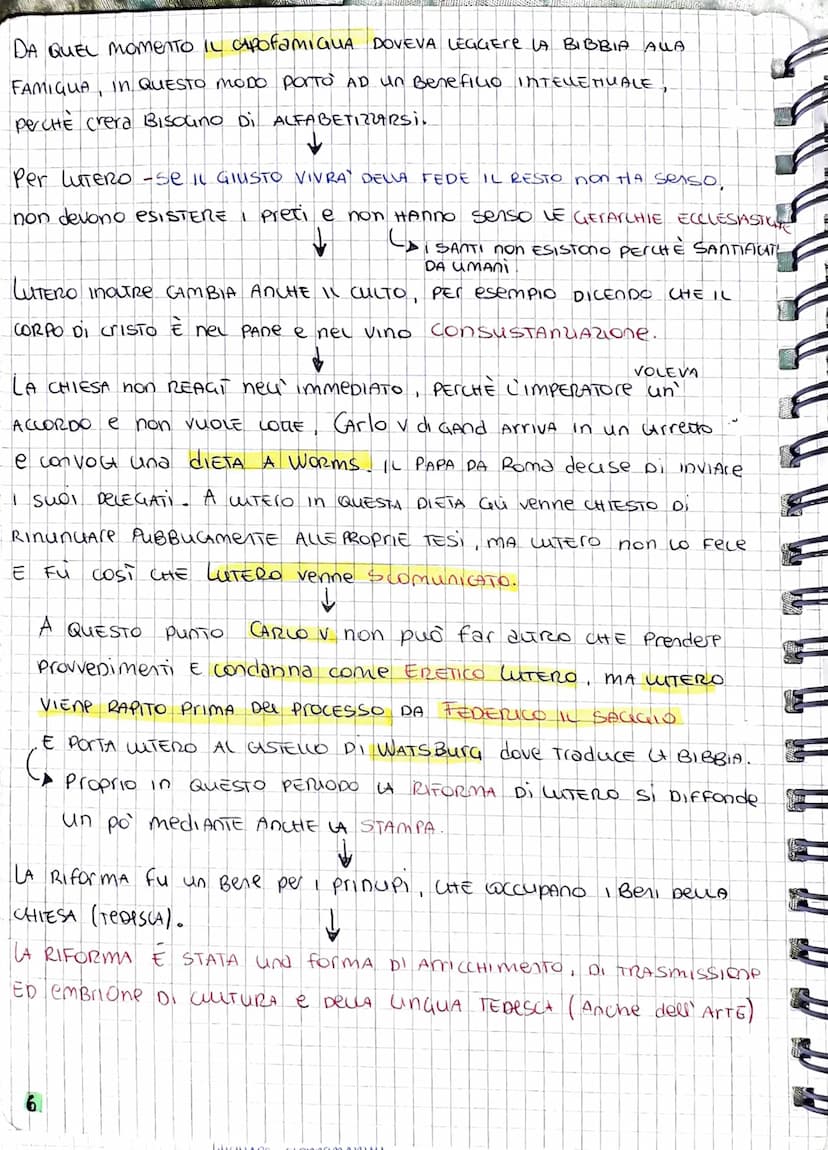 DA QUEL momento IL CAPOFAMIGLIA DOVEVA LEGGERE LA BIBBIA ALLA
FAMIGLIA, IN QUESTO MODO PORTÒ AD UN BENEFICIO INTELLETTUALE,
PERCHÈ C'ERA BISOGNO DI ALFABETIZZARSI.
↓
Per LUTERO - SE IL GIUSTO VIVRA' DELLA FEDE IL RESTO NON HA SENSO,
non devono ESISTERE I PRETI e non HANNO SENSO LE GERARCHIE ECCLESIASTICHE
↓ ↳ I SANTI NON ESISTONO PERCHÈ SANTIFICATI
DA UMANI.
LUTERO INOLTRE CAMBIA ANCHE IL CULTO, PER ESEMPIO DICENDO CHE IL
CORPO DI CRISTO È NEL PANE e NEL VINO CONSUSTANZIAZIONE.
↓
VOLEVA
LA CHIESA NON REAGÌ NELL'IMMEDIATO, PERCHÈ L'IMPERATORE UN'
ACCORDO e NON VUOLE LOTTE, CARLO V DI GAND ARRIVA IN UN
e CONVOCA UNA DIETA A WORMS. IL PAPA DA ROMA DECISE DI INVIARE
I SUOI DELEGATI. A LUTERO IN QUESTA DIETA GLI VENNE CHIESTO DI
RINUNCIARE PUBBLICAMENTE ALLE PROPRIE TESI, MA LUTERO NON LO FECE
E FÙ COSÌ CHE LUTERO VENNE SCOMUNICATO.
↓
A QUESTO PUNTO CARLO V NON PUÒ FAR ALTRO CHE PRENDERE
PROVVEDIMENTI E CONDANNA COME ERETICO LUTERO, MA LUTERO
VIENE RAPITO PRIMA DEL PROCESSO DA FEDERICO IL SAGGIO
E PORTA LUTERO AL CASTELLO DI WATSBURG dove TRADUCE LA BIBBIA.
↳ PROPRIO IN QUESTO PERIODO LA RIFORMA DI LUTERO SI DIFFONDE
UN PÒ MEDIANTE ANCHE LA STAMPA.
↓
LA RIFORMA FU UN BENE PER I PRINCIPI, CHE OCCUPANO I BENI DELLA
CHIESA (TEDESCA).
↓
LA RIFORMA È STATA UNA FORMA DI ARRICCHIMENTO, DI TRASMISSIONE
ED EMBRIONE DI CULTURA e DELLA LINGUA TEDESCA (ANCHE DELL'ARTE)
6